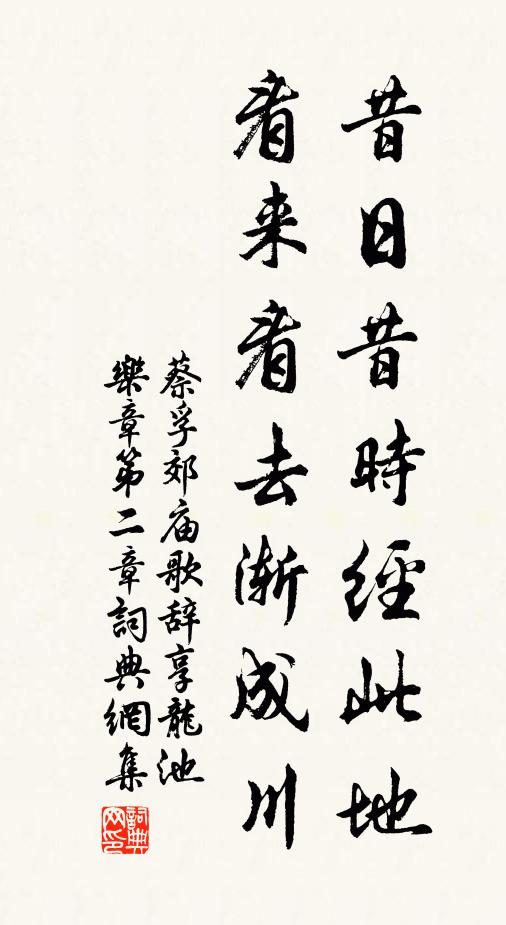 昔日昔時經此地
看来看去漸成川
蔡孚郊庙歌辞享龍池
樂章第二章詞典網集
詞典网印